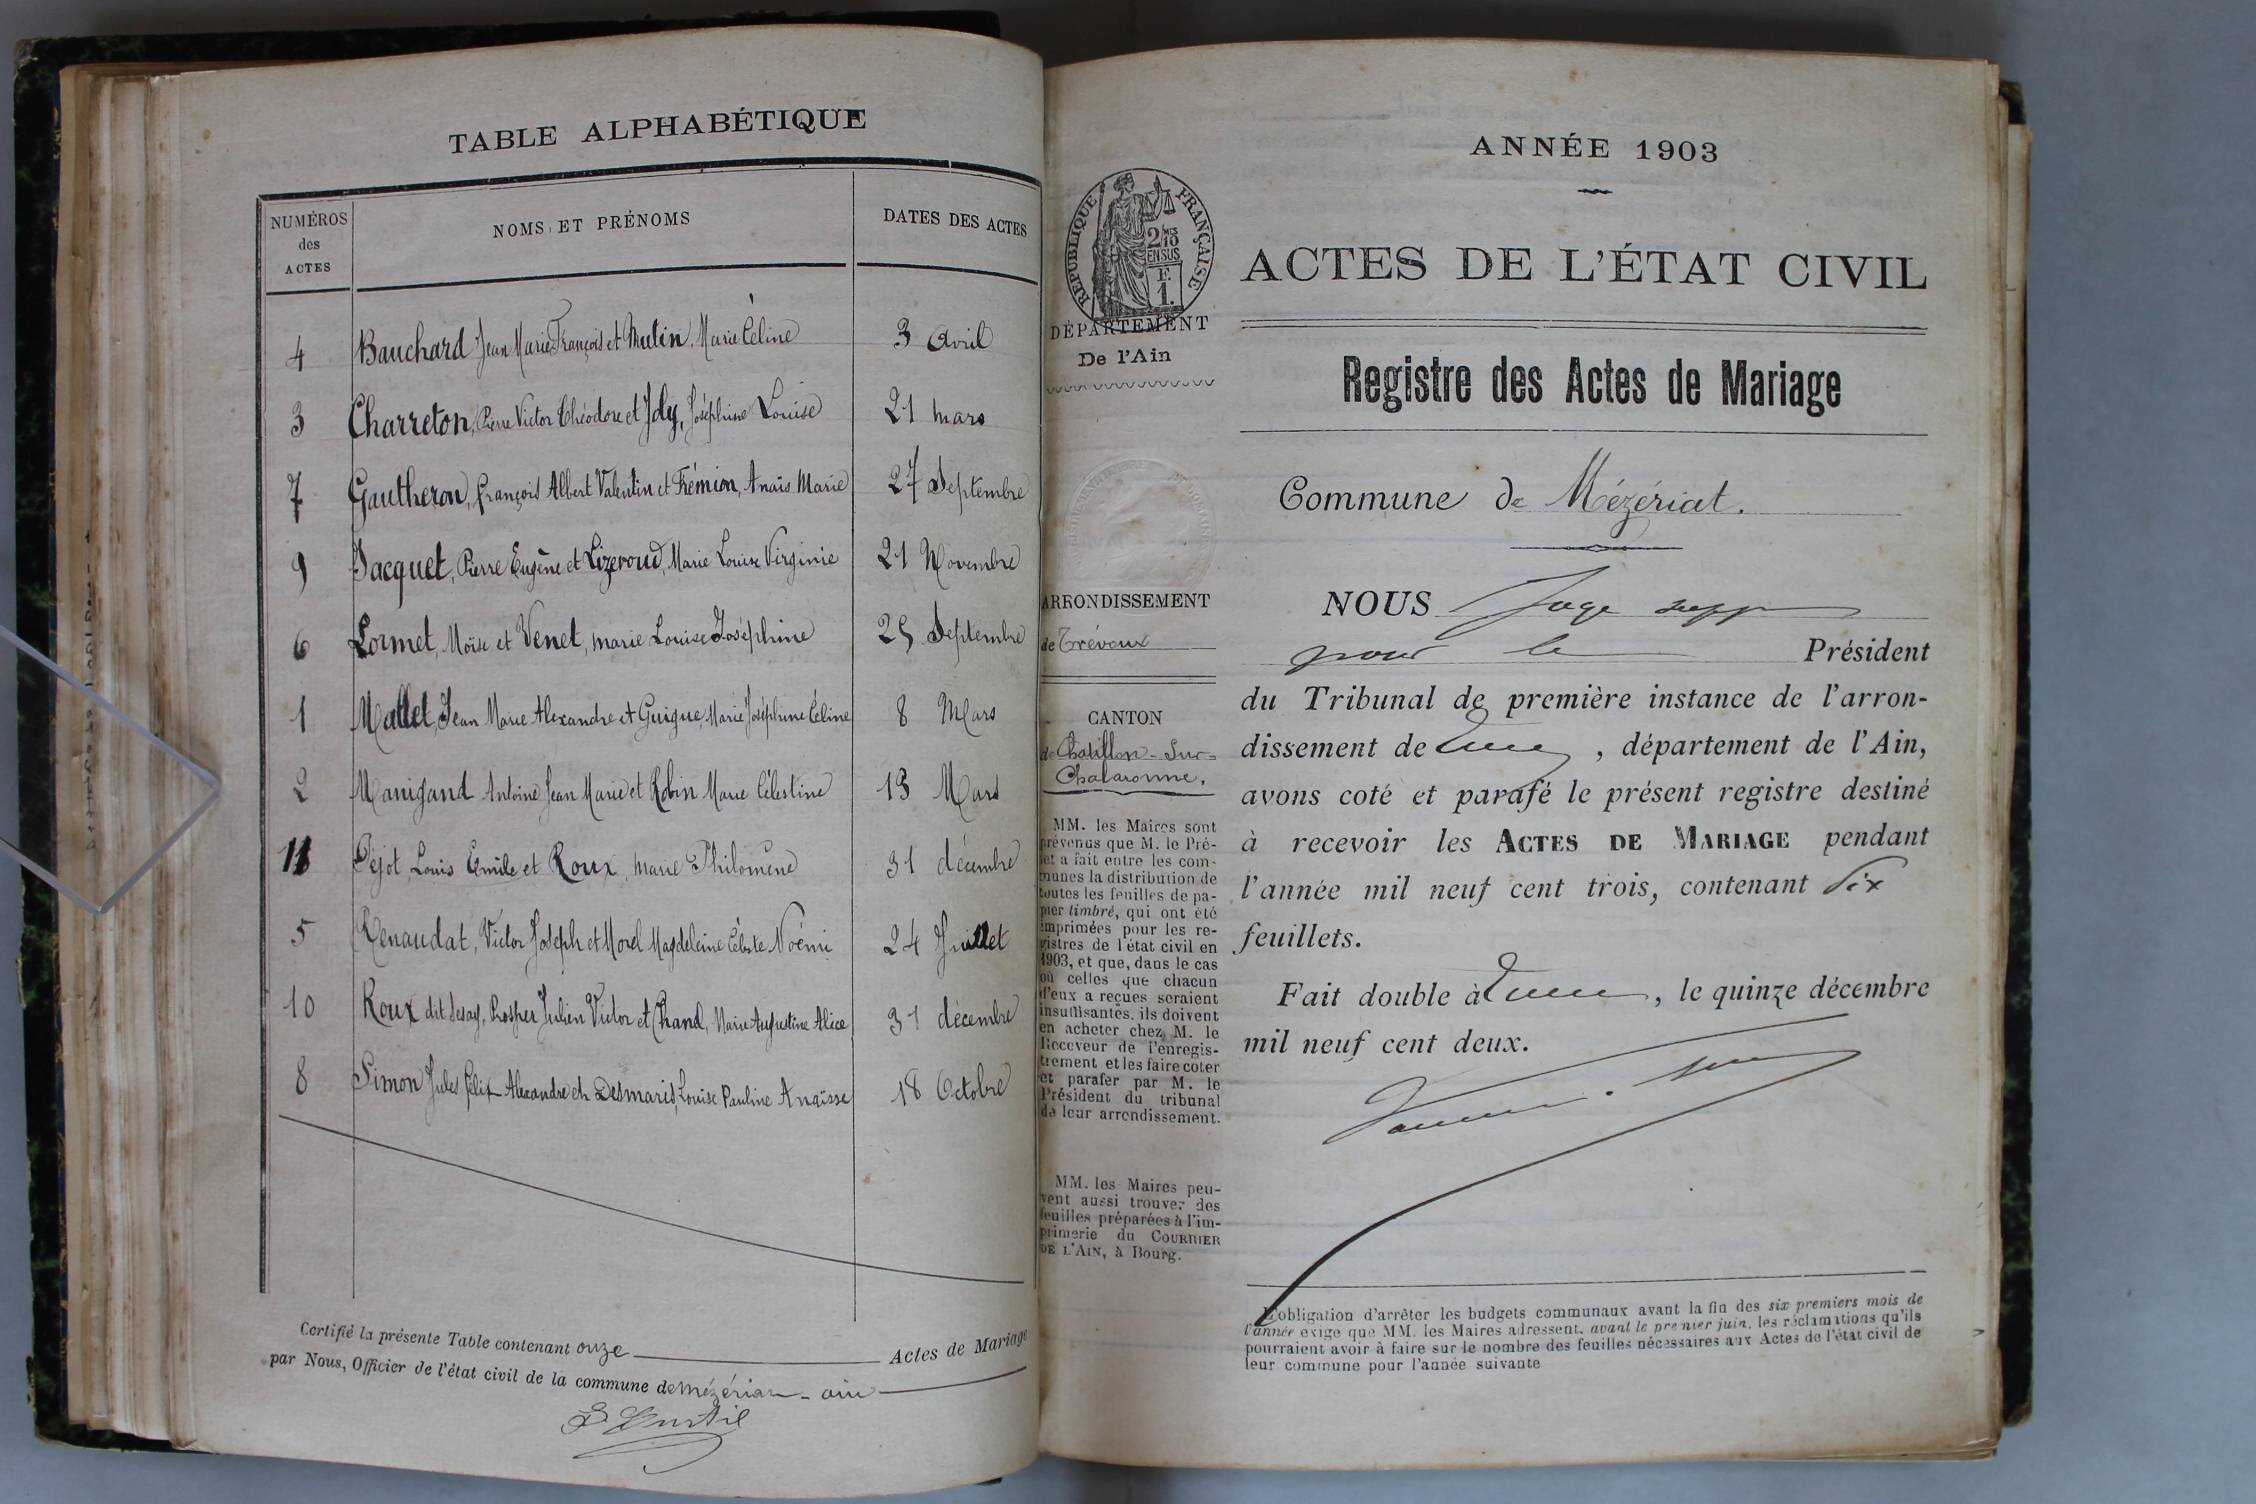 TABLE ALPHABÉTIQUE
NUMÉROS des ACTES
NOMS ET PRÉNOMS
DATES DES ACTES
4 Bauchard Jean Marie François et Mutin, Marie Céline 3 Avril
3 Charreton, Pierre Victor Théodore et Joly, Joséphine Louise 21 mars
7 Gautheron, François Albert Valentin et Frémion, Anaïs Marie 27 Septembre
9 Jacquet, Pierre Eugène et Lizeroud, Marie Louise Virginie 21 Novembre
6 Lormet, Moïse et Venet, marie Louise Joséphine 25 Septembre
1 Mallet, Jean Marie Alexandre et Guigue, Marie Joséphine Céline 8 Mars
2 Manigand Antoine Jean Marie et Robin Marie Célestine 13 Mars
11 Péjot, Louis Emile et Roux, marie Philomène 31 décembre
5 Renaudat, Victor Joseph et Morel Magdeleine Céleste Noémi 24 Juillet
10 Roux dit Prosper Julien Victor et Chanel, Marie Augustine Alice 31 décembre
8 Simon Jules Félix Alexandre et Desmaris, Louise Pauline Anaïsse 18 Octobre
Certifié la présente Table contenant onze Actes de Mariage
par Nous, Officier de l'état civil de la commune de Mézériat - ain
ANNÉE 1903
RÉPUBLIQUE FRANÇAISE
2/10 EN SUS
F. 1.
ACTES DE L'ÉTAT CIVIL
DÉPARTEMENT
De l'Ain
Registre des Actes de Mariage
Commune de Mézériat.
ARRONDISSEMENT
de Trévoux
CANTON
de Chatillon-sur-
Chalaronne.
MM. les Maires sont
prévenus que M. le Pré-
fet a fait entre les com-
munes la distribution de
toutes les feuilles de pa-
pier timbré, qui ont été
imprimées pour les re-
gistres de l'état civil en
1903, et que, dans le cas
où celles que chacun
d'eux a reçues seraient
insuffisantes, ils doivent
en acheter chez M. le
Receveur de l'enregis-
trement et les faire coter
et parafer par M. le
Président du tribunal
de leur arrondissement.
MM. les Maires peu-
vent aussi trouver des
feuilles préparées à l'im-
primerie du COURRIER
DE L'AIN, à Bourg.
NOUS Juge supp
pour le Président
du Tribunal de première instance de l'arron-
dissement de , département de l'Ain,
avons coté et parafé le présent registre destiné
à recevoir les ACTES DE MARIAGE pendant
l'année mil neuf cent trois, contenant Six
feuillets.
Fait double à , le quinze décembre
mil neuf cent deux.
L'obligation d'arrêter les budgets communaux avant la fin des six premiers mois de
l'année exige que MM. les Maires adressent, avant le premier juin, les réclamations qu'ils
pourraient avoir à faire sur le nombre des feuilles nécessaires aux Actes de l'état civil de
leur commune pour l'année suivante